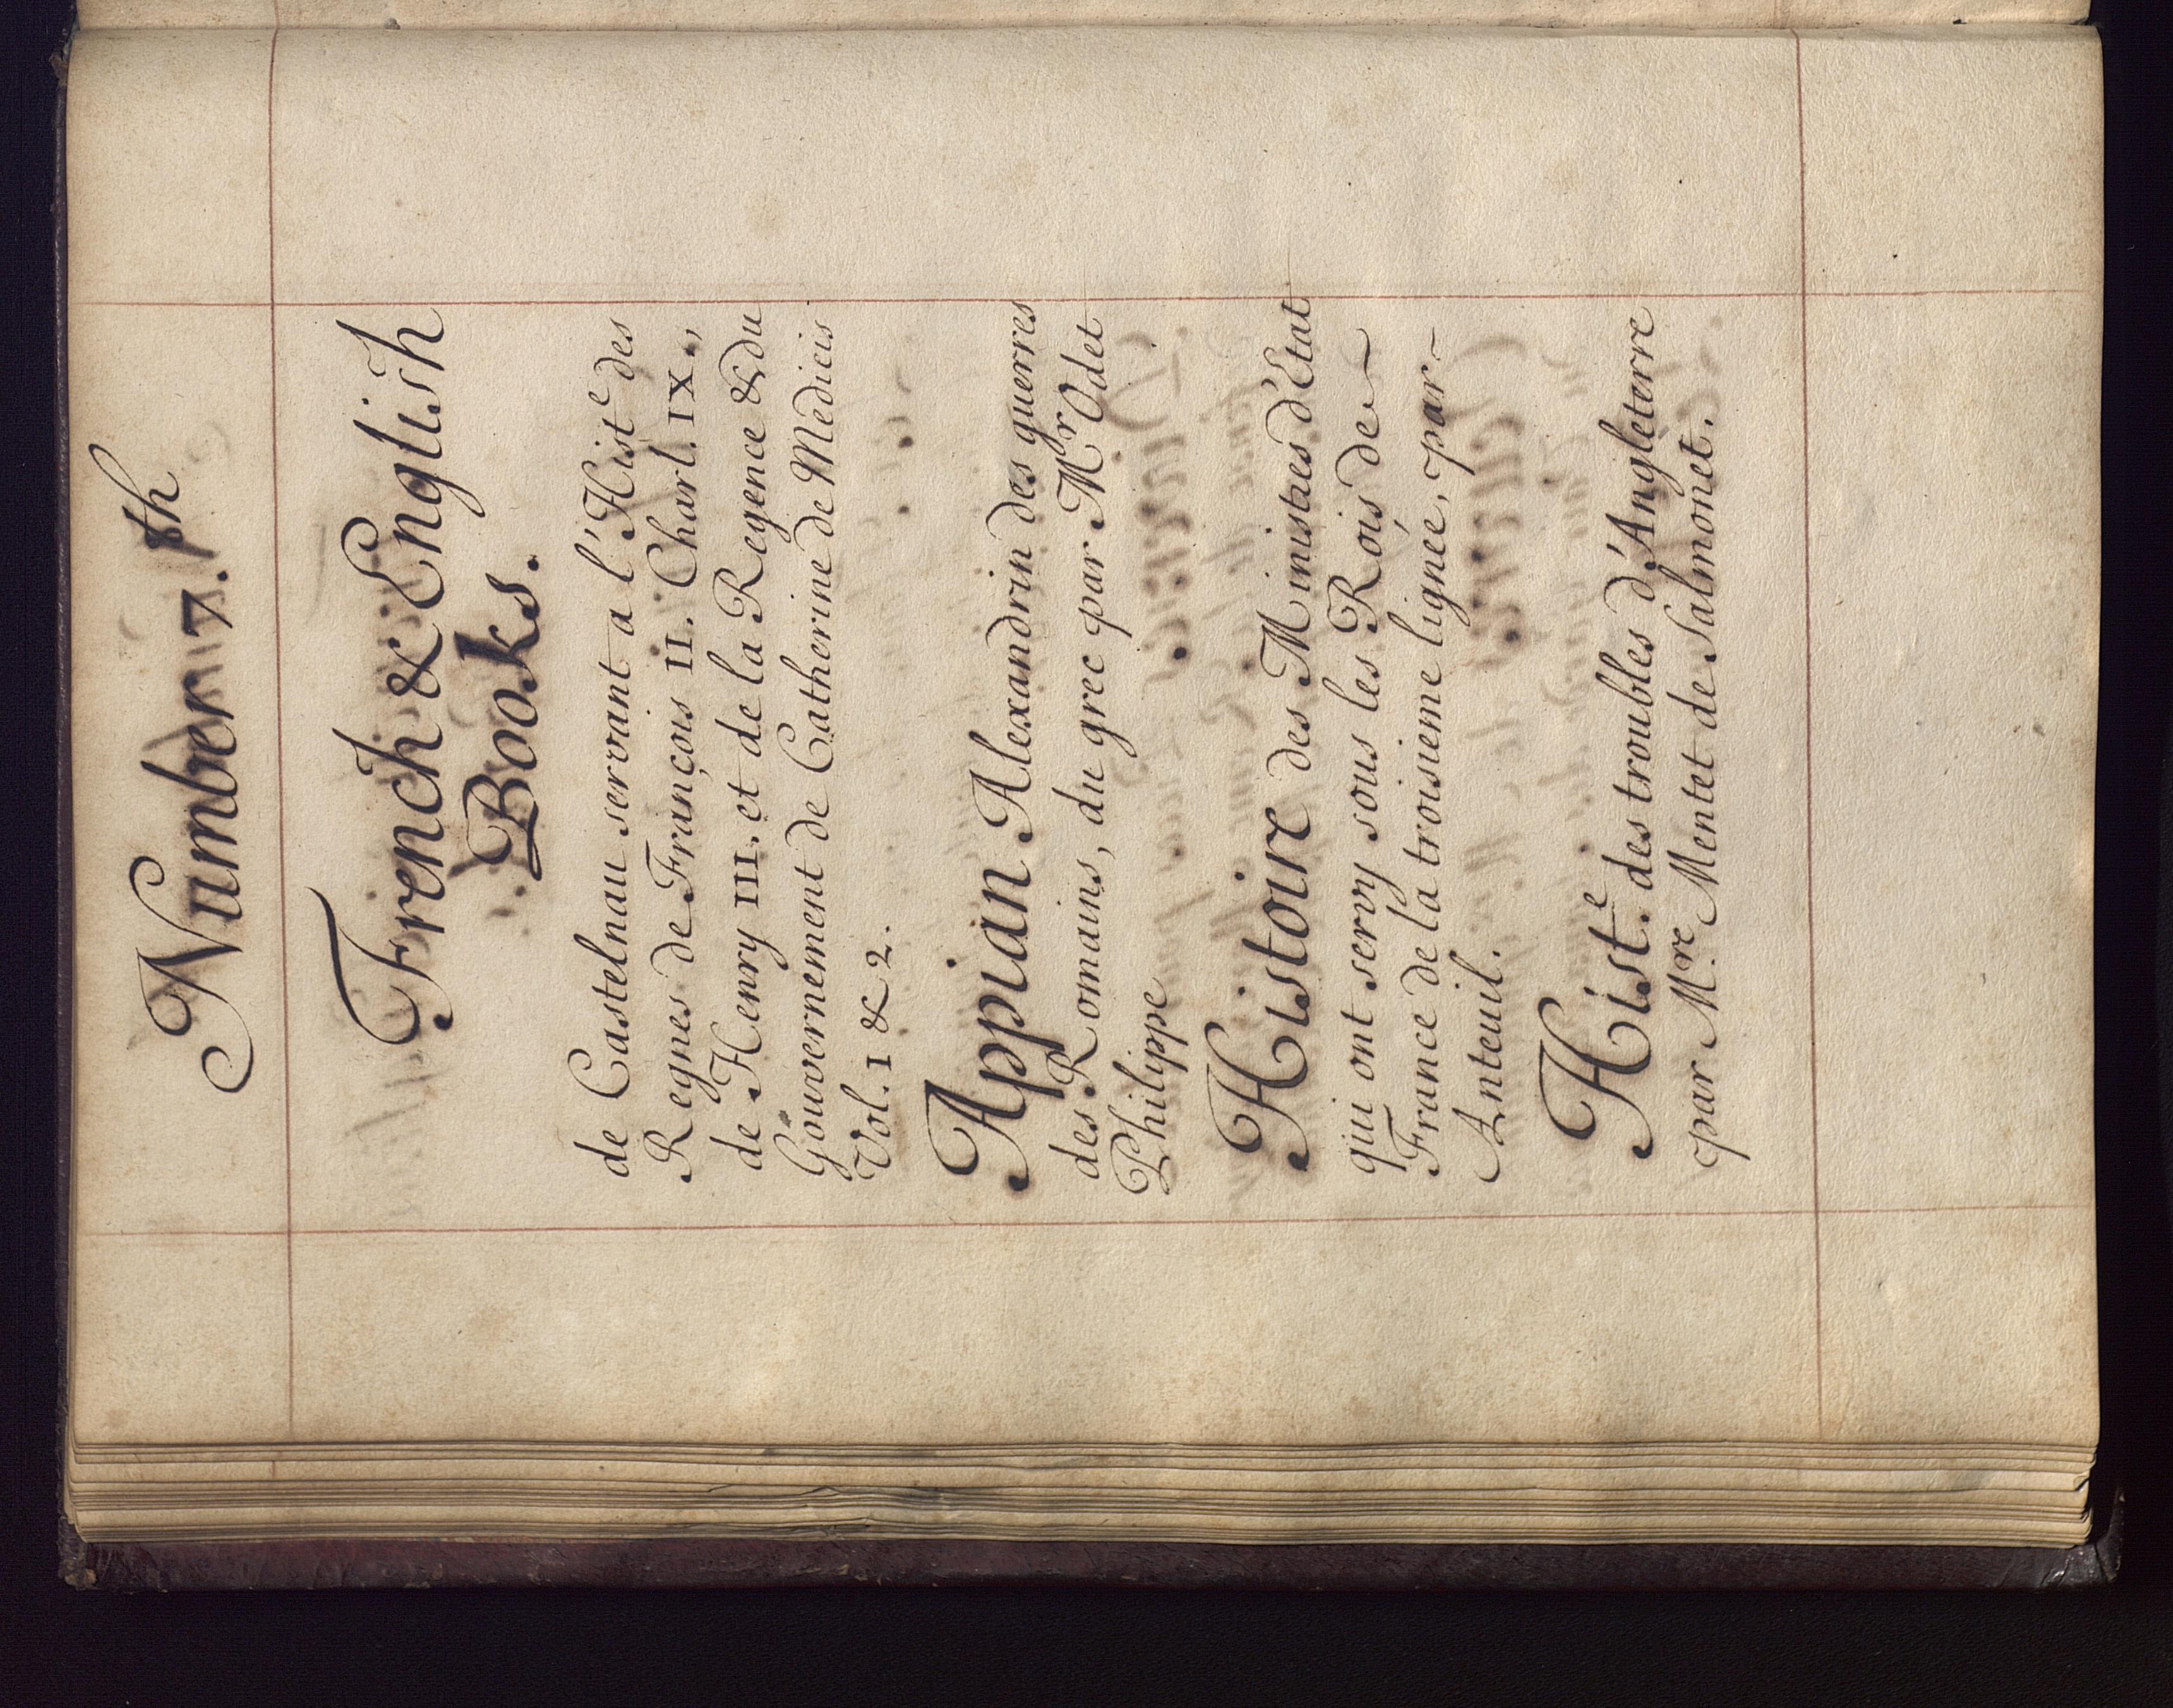 Number 7.th
French & English
Books.
de Castelnau servant a l'Histe des
Regnes de François II. Charl. IX.,
de Henry III. et de la Regence & du
Gouvernement de Catherine de Medicis
Vol. 1 & 2.
Appian Alexandrin des guerres
des Romains, du grec par Mr Odet
Philippe
Histoire des Ministres d'Etat
qui ont servy sous les Rois de
France de la troisieme lignée, par
Anteuil.
Histe. des troubles d'Angleterre
par Mre. Mentet de Salmonet.